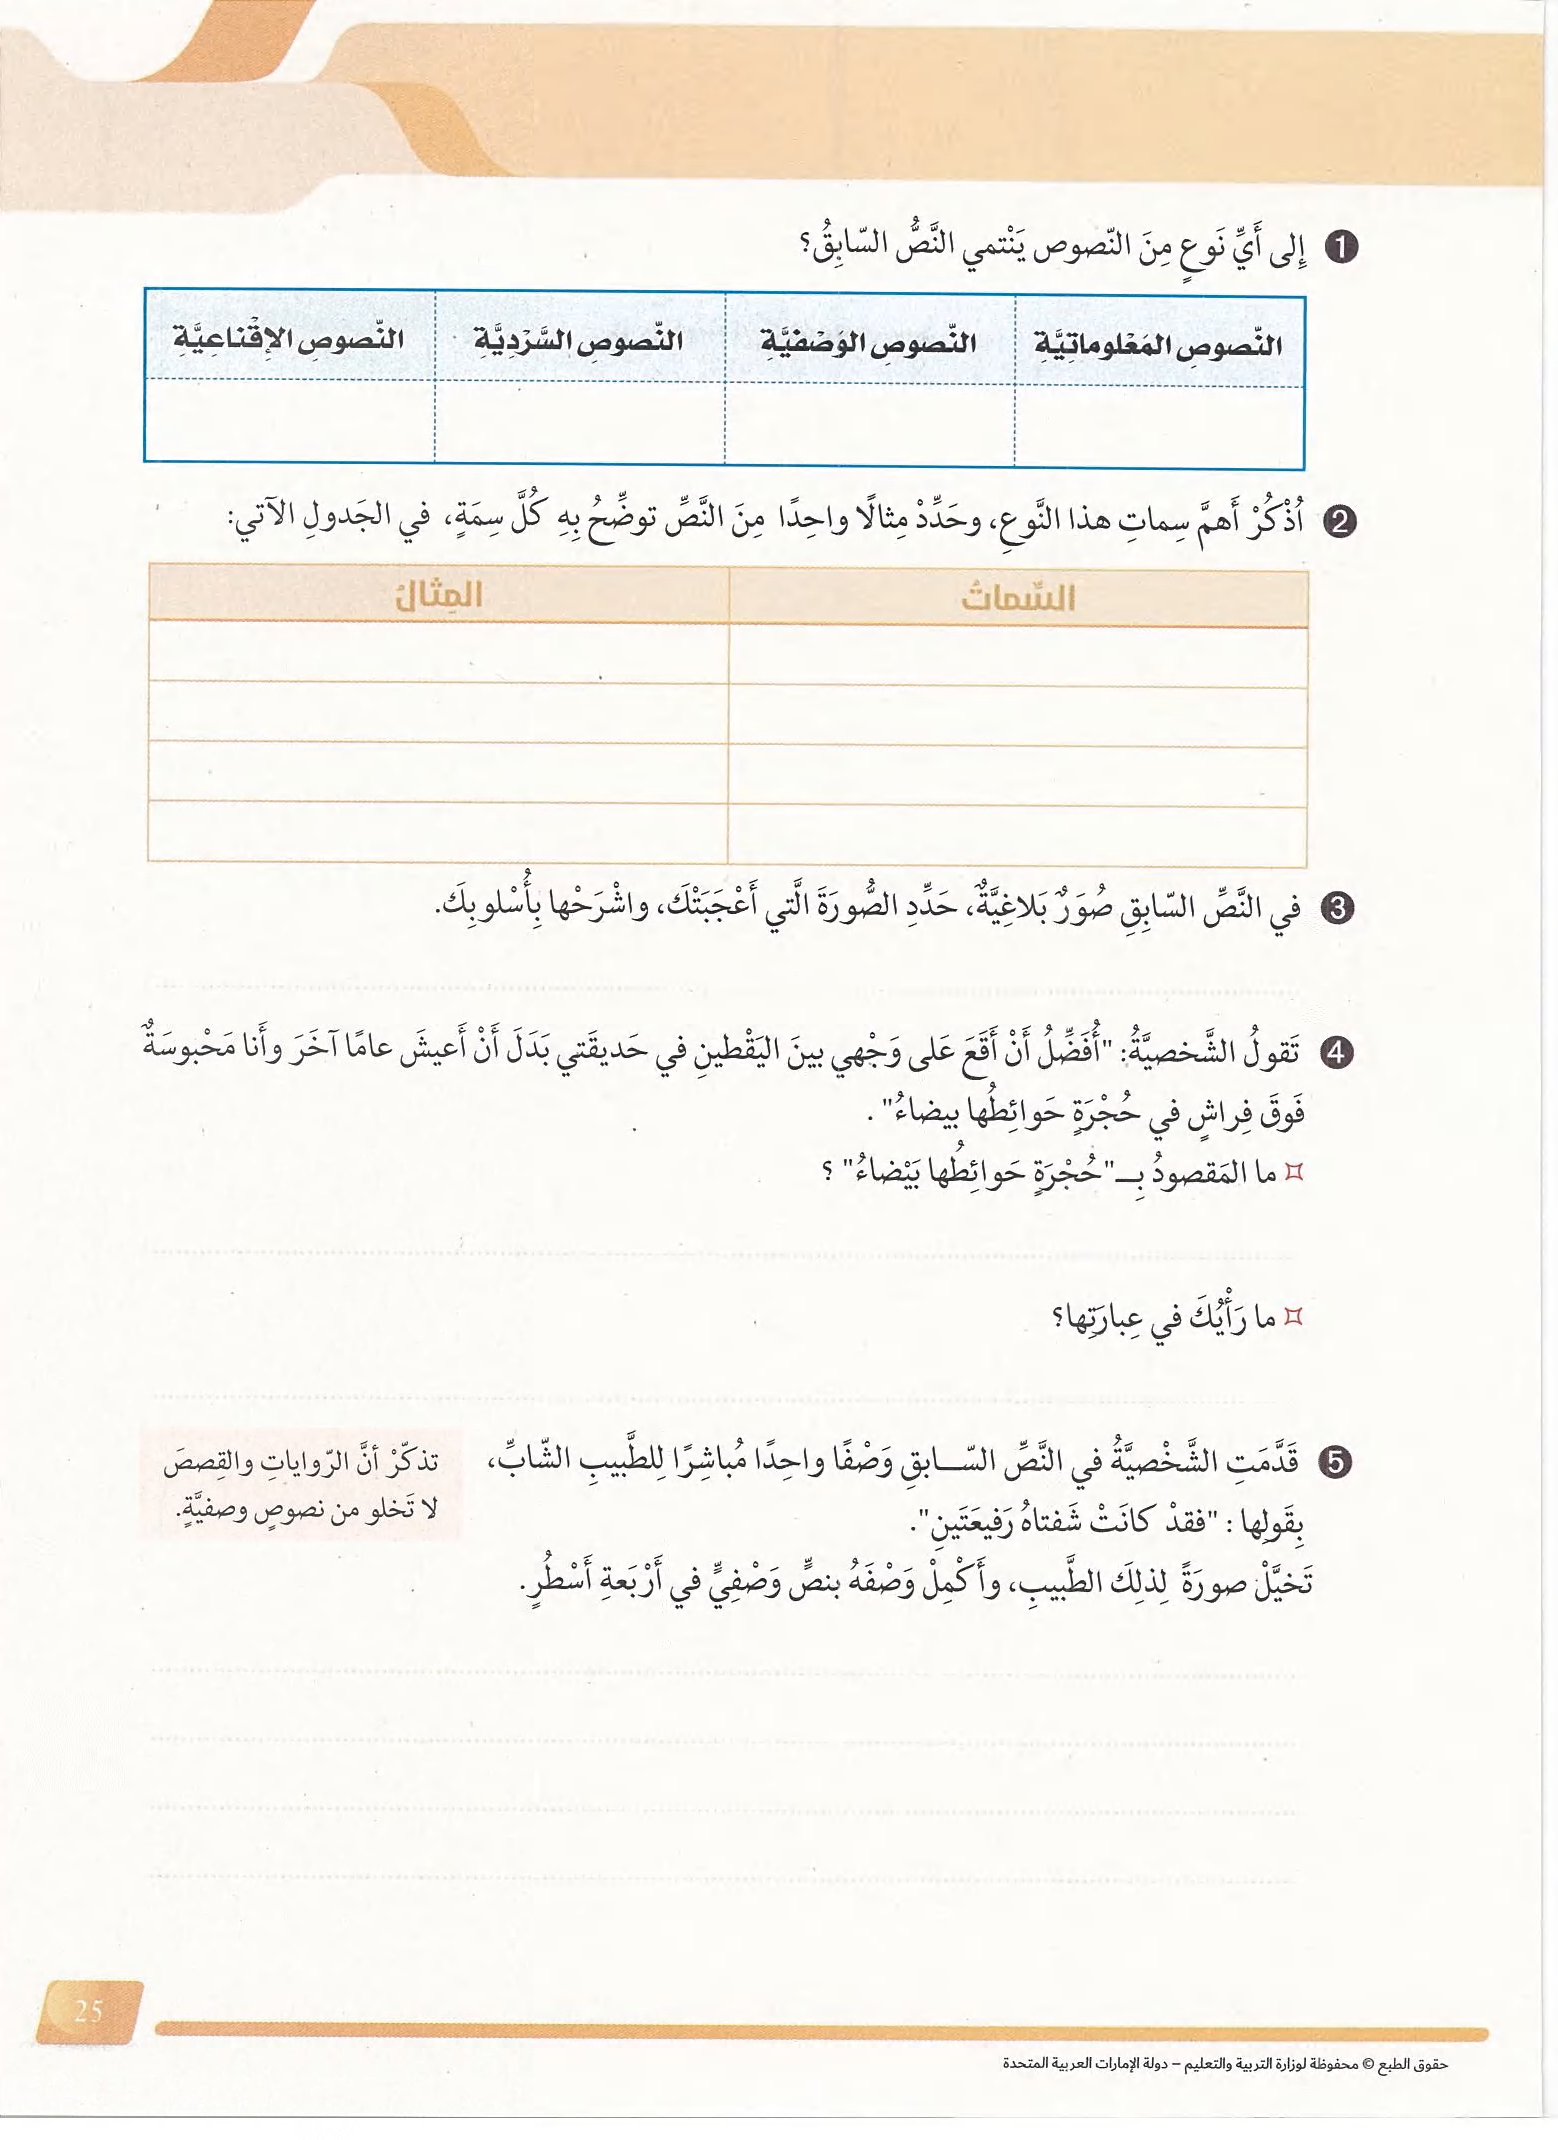 1 إِلى أَيِّ نَوعٍ مِنَ النّصوص يَنْتمي النَّصُّ السّابِقُ؟
النّصوصِ المَعْلوماتِيَّةِ النّصوصِ الوَصْفيَّةِ النّصوصِ السَّرْدِيَّةِ النّصوصِ الإِقْناعِيَّةِ
2 اُذْكُرْ أَهمَّ سِماتِ هذا النَّوعِ، وحَدِّدْ مِثالًا واحِدًا مِنَ النَّصِّ توضِّحُ بِهِ كُلَّ سِمَةٍ، في الجَدولِ الآتي:
السِّماتُ المِثالُ
3 في النَّصِّ السّابِقِ صُوَرٌ بَلاغِيَّةٌ، حَدِّدِ الصُّورَةَ الَّتي أَعْجَبَتْكَ، واشْرَحْها بِأُسْلوبِكَ.
4 تَقولُ الشَّخصيَّةُ: "أُفَضِّلُ أَنْ أَقَعَ عَلى وَجْهي بينَ اليَقْطينِ في حَديقَتي بَدَلَ أَنْ أَعيشَ عامًا آخَرَ وأَنا مَحْبوسَةٌ
فَوقَ فِراشٍ في حُجْرَةٍ حَوائِطُها بيضاءُ".
¤ ما المَقصودُ بِـ"حُجْرَةٍ حَوائِطُها بَيْضاءُ" ؟
¤ ما رَأْيُكَ في عِبارَتِها؟
5 قَدَّمَتِ الشَّخْصيَّةُ في النَّصِّ السّابقِ وَصْفًا واحِدًا مُباشِرًا لِلطَّبيبِ الشّابِّ،
بِقَولِها : "فقدْ كانَتْ شَفتاهُ رَفيعَتَينِ".
تَخيَّلْ صورَةً لِذلِكَ الطَّبيبِ، وأَكْمِلْ وَصْفَهُ بنصٍّ وَصْفِيٍّ في أَرْبَعةِ أَسْطُرٍ.
تذكّرْ أنَّ الرّواياتِ والقِصصَ
لا تَخلو من نصوصٍ وصفيَّةٍ.
25
حقوق الطبع © محفوظة لوزارة التربية والتعليم – دولة الإمارات العربية المتحدة